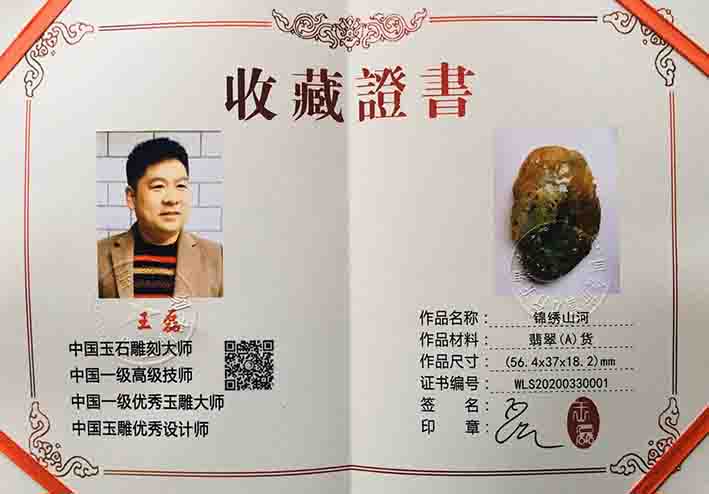 收藏證書
王磊
中国玉石雕刻大师
中国一级高级技师
中国一级优秀玉雕大师
中国玉雕优秀设计师
作品名称：锦绣山河
作品材料：翡翠(A)货
作品尺寸：(56.4x37x18.2)mm
证书编号：WLS20200330001
签名：
印章：